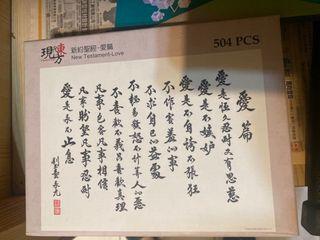 現
東方
新約聖經-愛篇
New Testament-Love
504 PCS
愛篇
愛是恆久忍耐又有恩慈
愛是不嫉妒
愛是不自誇不張狂
不作害羞的事
不求自己的益處
不輕易發怒不計算人的惡
不喜歡不義只喜歡真理
凡事包容凡事相信
凡事盼望凡事忍耐
愛是永不止息